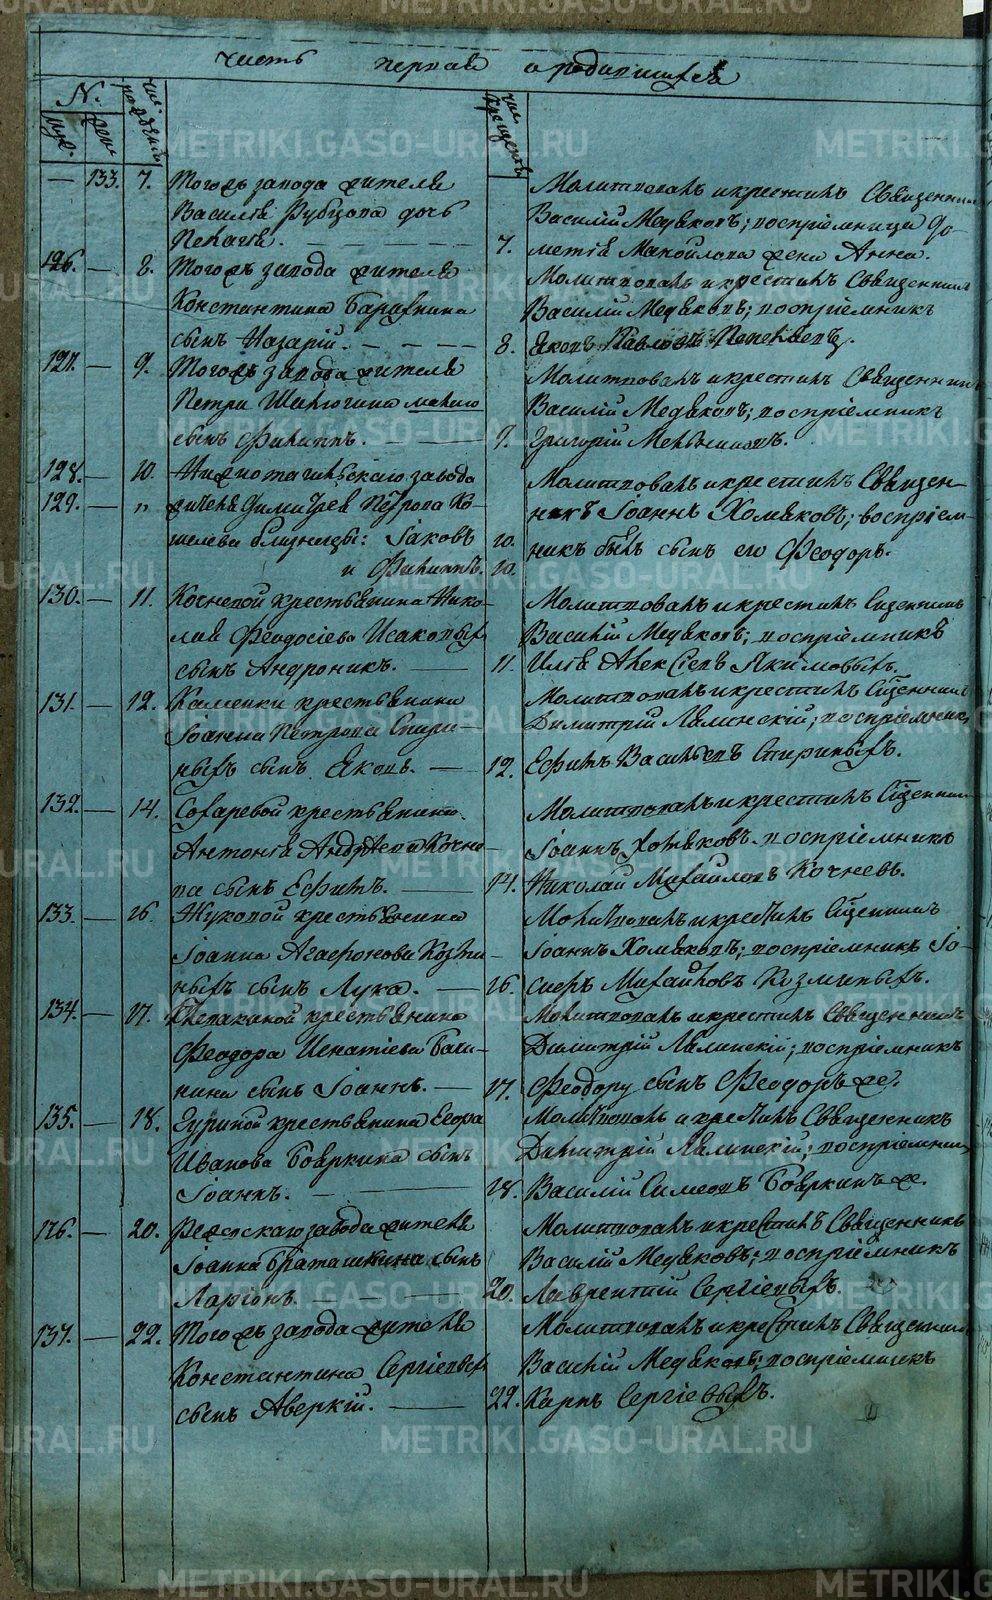 часть первая о родившихся
N. числ. рожденiя числ. крещенiя
муж. жен.
— 133. 7. Тогожъ завода жителя
Василiя Рубцова дочь
Пелагiя.
Молитвовалъ и крестилъ Священникъ
Василiй Медяковъ; восприемница До-
7. метiя Мануйлова жена Анна.
126. — 8. Тогожъ завода жителя
Константина
сынъ Назарiй.
Молитвовалъ и крестилъ Священникъ
Василiй Медяковъ; воспрiемникъ
8. Яковъ Павловъ
127. — 9. Тогожъ завода жителя
Петра Шалюгина
сынъ Филиппъ.
Молитвовалъ и крестилъ Священникъ
Василiй Медяковъ; воспрiемникъ
9. Григорiй Меньшиковъ.
128. — 10. Нижнотагильскаго завода
129. — „ жителя Димитрея Петрова Ко-
шелева близнецы: Iаковъ
и Филиппъ.
Молитвовалъ и крестилъ Священ-
никъ Iоаннъ Хомяковъ; воспрiем-
10. никъ былъ сынъ его Феодоръ.
10.
130. — 11. крестьянина Нико-
лая Феодосiева Исаковыхъ
сынъ Андроникъ.
Молитвовалъ и крестилъ Сщенникъ
Василiй Медяковъ; воспрiемникъ
11. Илiя Алексiевъ Якимовыхъ.
131. — 12. Каменки крестьянина
Iоанна Петрова Спири-
ныхъ сынъ Яковъ.
Молитвовалъ и крестилъ Сщенникъ
Димитрiй Лялинскiй; воспрiемникъ
12. Ефимъ Васильевъ Спириныхъ.
132. — 14. Сохаревой крестьянина
Антонiя Андреева Кочне-
ва сынъ Ефимъ.
Молитвовалъ и крестилъ Сщенникъ
Iоаннъ Хомяковъ. воспрiемникъ
14. Николай Михайловъ Кочневъ.
133. — 16. Жуковой крестьянина
Iоанна Агафонова Козми-
ныхъ сынъ Лука.
Молитвовалъ и крестилъ Сщенникъ
Iоаннъ Хомяковъ; воспрiемникъ Iо-
16. сифъ Михайловъ Козминыхъ.
134. — 17. крестьянина
Феодора Игнатiева Баки-
нина сынъ Iоаннъ.
Молитвовалъ и крестилъ Священникъ
Димитрiй Лялинскiй; воспрiемникъ
17. Феодору сынъ Феодоръ же.
135. — 18. Гуриной крестьянина Егора
Иванова Бояркина сынъ
Iоаннъ.
Молитвовалъ и крестилъ Священникъ
Димитрiй Лялинскiй; воспрiемникъ
18. Василiй Симеовъ Бояркинъ же.
136. — 20. Режевскаго завода жителя
Iоанна Браташкина сынъ
Ларiонъ.
Молитвовалъ и крестилъ Священникъ
Василiй Медяковъ; воспрiемникъ
20. Лаврентiй Сергiевыхъ.
137. — 22. Тогожъ завода жителя
Константина Сергiевыхъ
сынъ Аверкiй.
Молитвовалъ и крестилъ Священникъ
Василiй Медяковъ; воспрiемникъ
22. Карпъ Сергiевыхъ.
METRIKI.GASO-URAL.RU